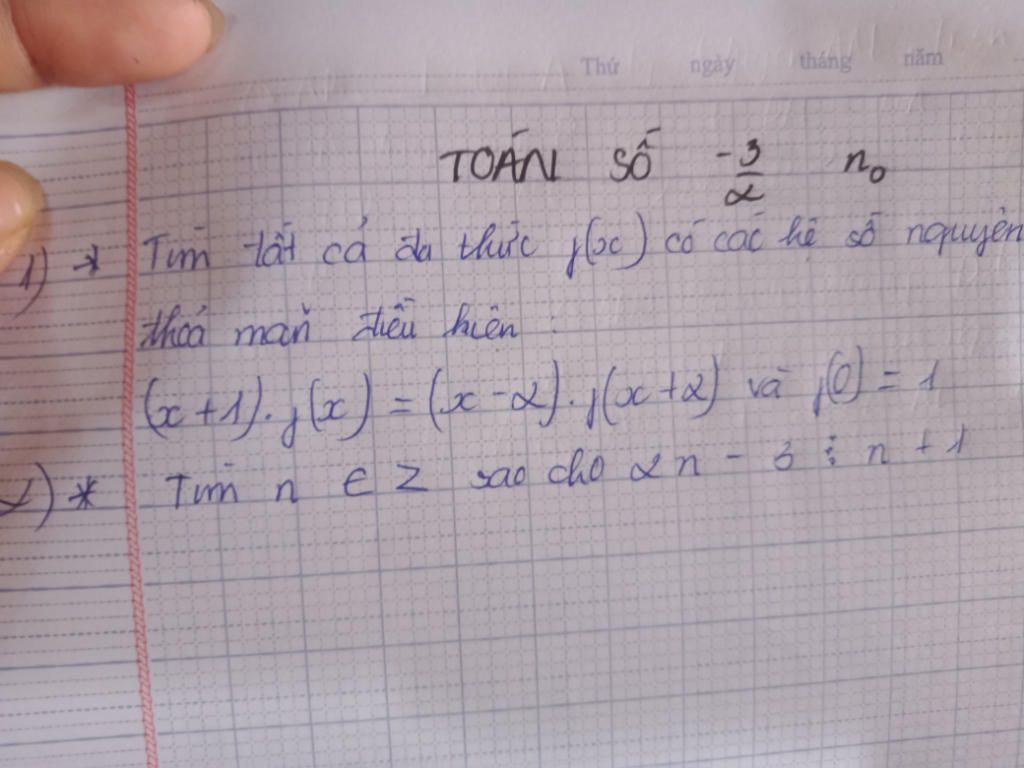 Thứ ngày tháng năm
TOÁN SỐ -3/2 n₀
1) * Tìm tất cả đa thức f(x) có các hệ số nguyên
thoả mãn điều kiện :
(x + 1). f(x) = (x - 2). f(x + 2) và f(0) = 1
2) * Tìm n ∈ Z sao cho 2n - 3 ⋮ n + 1